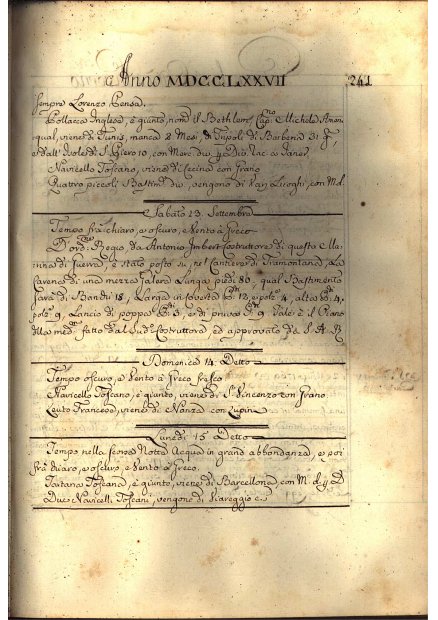 Anno MDCCLXXVII
241
Sempre Lorenzo Censa.
Pollacca Inglese, è giunto, nom. il Bethlem, Cap.no Michele
qual, viene di Tunis, manca 2 Mesi, di Tripoli di Barberia 31 g.
e dall' Isole di S. Piero 10, con Merc. div.
Navicello Toscano, viene di Cecina con Grano
Quattro piccoli Bastim.ti div. vengono di vari Luoghi, con M. d.
Sabato 13. Settembre
Tempo frà chiaro, e oscuro, e Vento à Greco
D'ord. Regio, da Antonio Imbert Costruttore di questa Ma-
rina di Guerra, è stato posto su, nel Cantiero di Tramontana, La
Carena di una mezza Galera Lunga piedi 80, qual Bastimento
sarà di Banchi 18, Larga in Coverta P. 12, e polz. 4, alta P. 4,
polz. 9, Lancio di poppa P. 3, e di prua P. 9 Tale è il Piano
della med. fatto dal Sud.o Costruttore, ed approvato da S. A. R.
Domenica 14. Detto
Tempo oscuro, e Vento à Greco fresco
Navicello Toscano, è giunto, viene di S. Vincenzo con Grano
Leuto Francese, viene di Nanza con Lupini
Lunedì 15. Detto
Tempo nella scorsa Notte Acqua in grand'abbondanza, e poi
frà chiaro, e oscuro, e Vento à Greco,
Tartana Toscana, è giunto, viene di Barcellona, con M. d. q. D
Due Navicelli Toscani, vengono di Viareggio c.s.